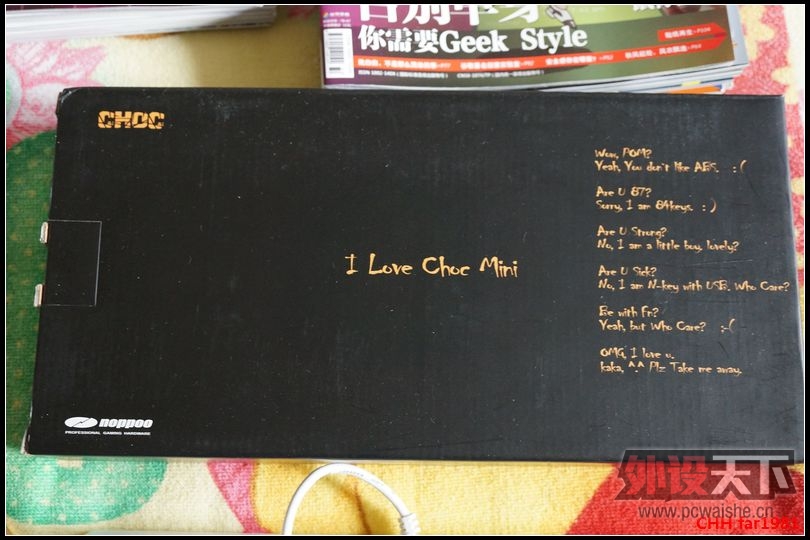 你需要Geek Style
CHOC
Wow, POM?
Yeah, You don't like ABS. :(
Are U 87?
Sorry, I am 84keys. :)
Are U Strong?
No, I am a little boy, lovely?
I Love Choc Mini
Are U Sick?
No, I am N-key with USB. Who Care?
Be with Fn?
Yeah, but Who Care? :-(
OMG, I love u.
kaka, ^.^ Plz Take me away.
noppoo
PROFESSIONAL GAMING HARDWARE
外设天下
www.pcwaishe.cn